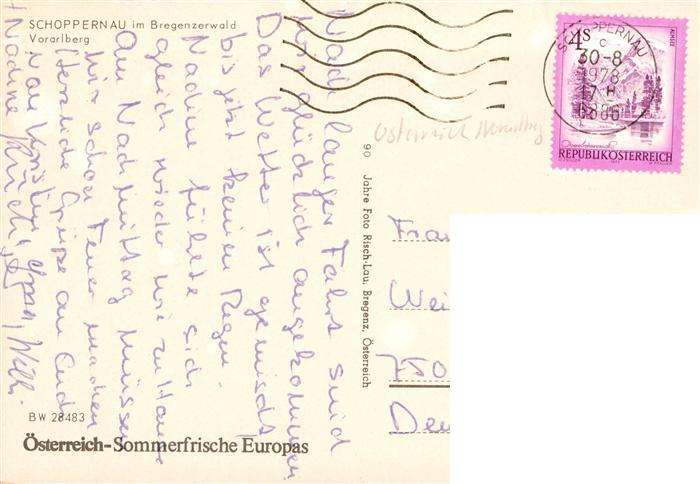 SCHOPPERNAU im Bregenzerwald
Vorarlberg
Nach langer Fahrt sind
wir glücklich angekommen
Das Wetter ist gemischt
bis jetzt keinen Regen.
Nadine fühlte sich
gleich wieder wie zu Hause
Am Nachmittag müssen
wir schon Feuer machen
Herzliche Grüße an Euch
von
Nadine
BW 28483
Österreich-Sommerfrische Europas
90 Jahre Foto Risch-Lau, Bregenz, Österreich
SCHOPPERNAU
30-8
1978
17 H
6886
4S
REPUBLIK ÖSTERREICH
Österreich Vorarlberg
Fra
Wei
750
Deu